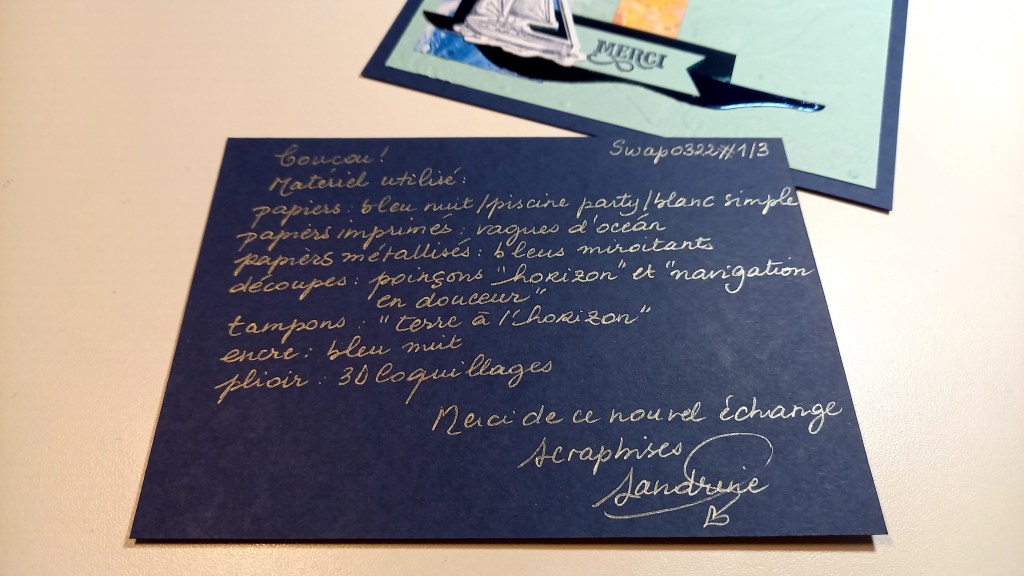 MERCI
Swap0322#1/3
Coucou!
Matériel utilisé:
papiers: bleu nuit/piscine party/blanc simple
papiers imprimés: vagues d'océan
papiers métallisés: bleus miroitants
découpes: poinçons "horizon" et "navigation
en douceur"
tampons: "terre à l'horizon"
encre: bleu nuit
plioir: 3D Coquillages
Merci de ce nouvel échange
Scrapbises
Sandrine